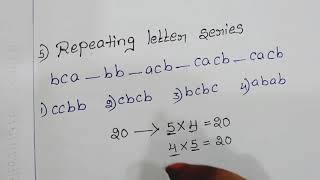 5) Repeating letter series
bca — bb — acb — cacb — cacb
1) ccbb 2) cbcb 3) bcbc 4) abab
20 → 5 x 4 = 20
4 x 5 = 20